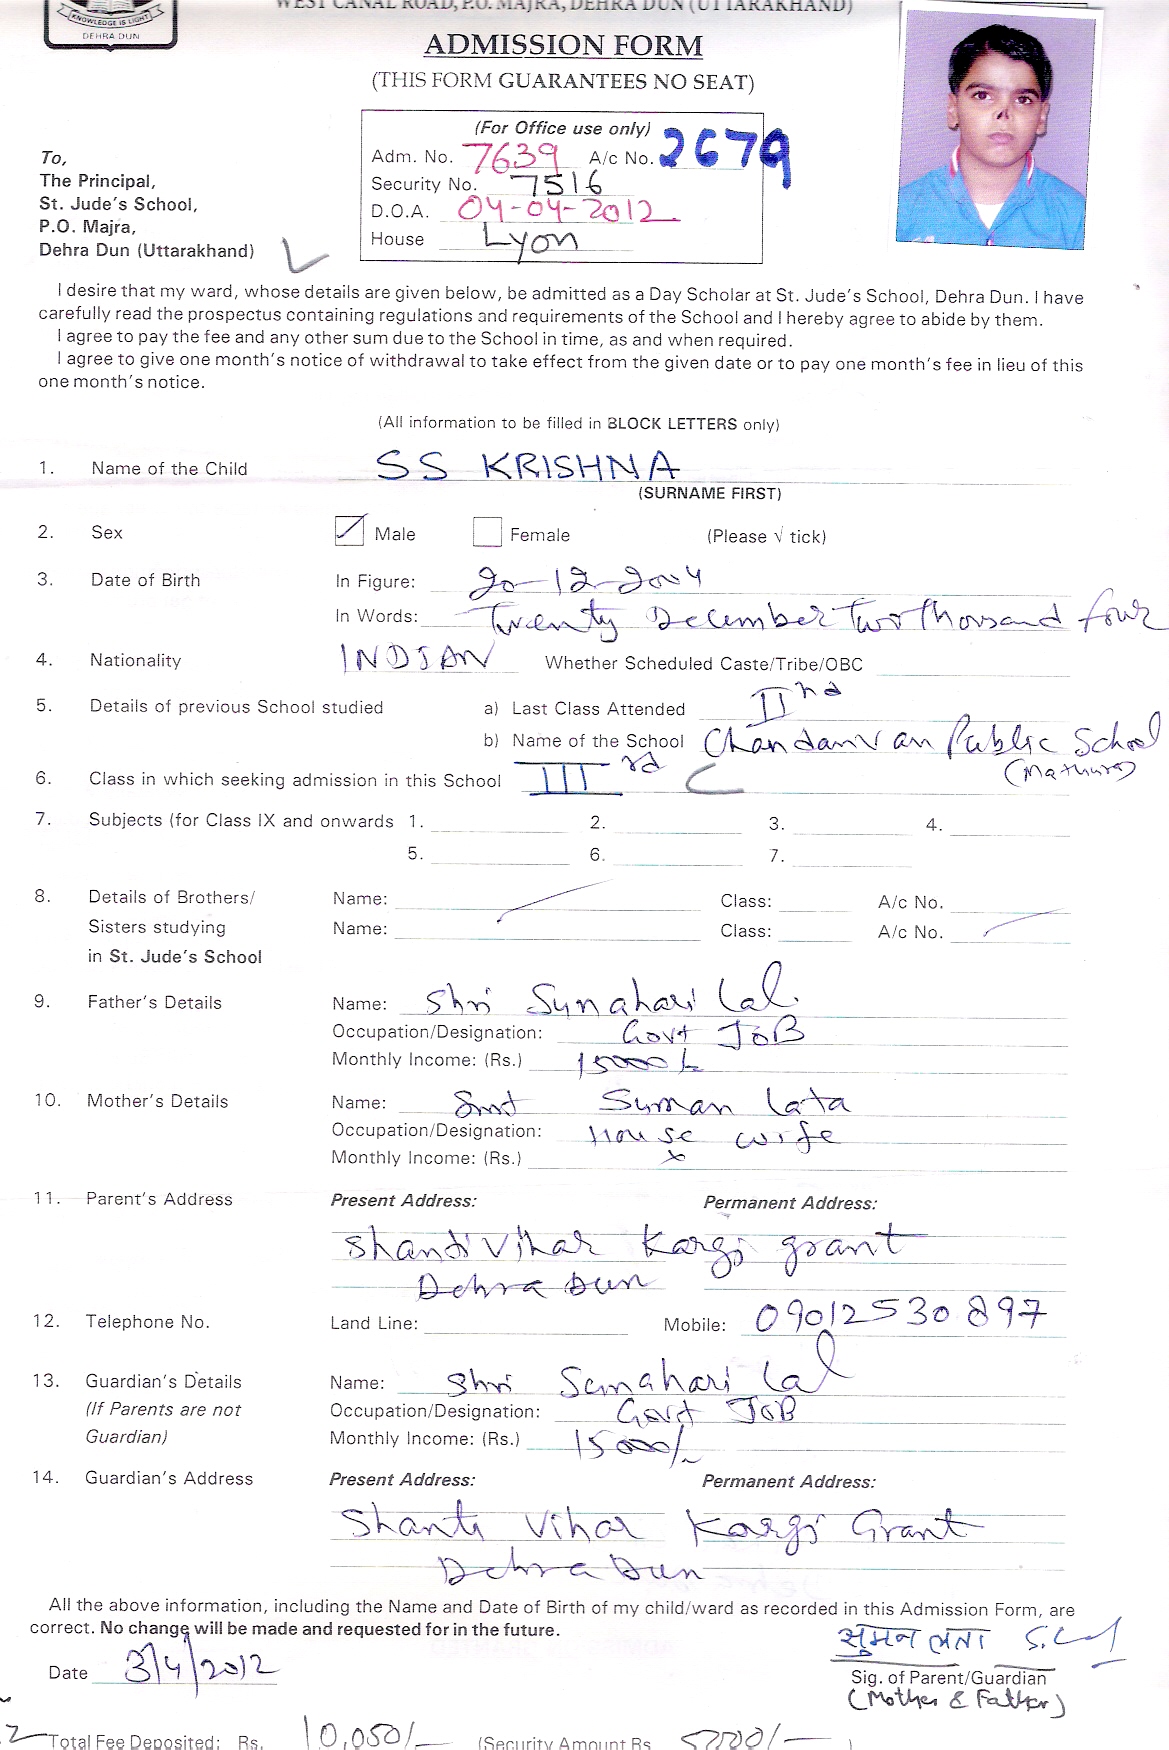 WEST CANAL ROAD, P.O. MAJRA, DEHRA DUN (UTTARAKHAND)
KNOWLEDGE IS LIGHT
DEHRA DUN
ADMISSION FORM
(THIS FORM GUARANTEES NO SEAT)
(For Office use only)
Adm. No. 7639 A/c No. 2679
Security No. 7516
D.O.A. 04-04-2012
House Lyon
To,
The Principal,
St. Jude's School,
P.O. Majra,
Dehra Dun (Uttarakhand)
I desire that my ward, whose details are given below, be admitted as a Day Scholar at St. Jude's School, Dehra Dun. I have
carefully read the prospectus containing regulations and requirements of the School and I hereby agree to abide by them.
I agree to pay the fee and any other sum due to the School in time, as and when required.
I agree to give one month's notice of withdrawal to take effect from the given date or to pay one month's fee in lieu of this
one month's notice.
(All information to be filled in BLOCK LETTERS only)
1. Name of the Child SS KRISHNA
(SURNAME FIRST)
2. Sex Male Female (Please √ tick)
3. Date of Birth In Figure: 20-12-2004
In Words: Twenty December Two Thousand four
4. Nationality INDIAN Whether Scheduled Caste/Tribe/OBC
5. Details of previous School studied a) Last Class Attended IInd
b) Name of the School Chandanvan Public School
(Mathura)
6. Class in which seeking admission in this School IIIrd C
7. Subjects (for Class IX and onwards 1. 2. 3. 4.
5. 6. 7.
8. Details of Brothers/ Name: Class: A/c No.
Sisters studying Name: Class: A/c No.
in St. Jude's School
9. Father's Details Name: Shri Sunahari Lal
Occupation/Designation: Govt JOB
Monthly Income: (Rs.) 15000/-
10. Mother's Details Name: Smt Suman Lata
Occupation/Designation: House wife
Monthly Income: (Rs.) x
11. Parent's Address Present Address: Permanent Address:
Shanti Vihar Kargi grant
Dehra Dun
12. Telephone No. Land Line: Mobile: 09012530897
13. Guardian's Details Name: Shri Sunahari Lal
(If Parents are not Occupation/Designation: Govt JOB
Guardian) Monthly Income: (Rs.) 15000/-
14. Guardian's Address Present Address: Permanent Address:
Shanti Vihar Kargi Grant
Dehra Dun
All the above information, including the Name and Date of Birth of my child/ward as recorded in this Admission Form, are
correct. No change will be made and requested for in the future.
सुमन लता
Date 3/4/2012 Sig. of Parent/Guardian
(Mother & Father)
Total Fee Deposited: Rs. 10,050/- (Security Amount Rs 5000/- )